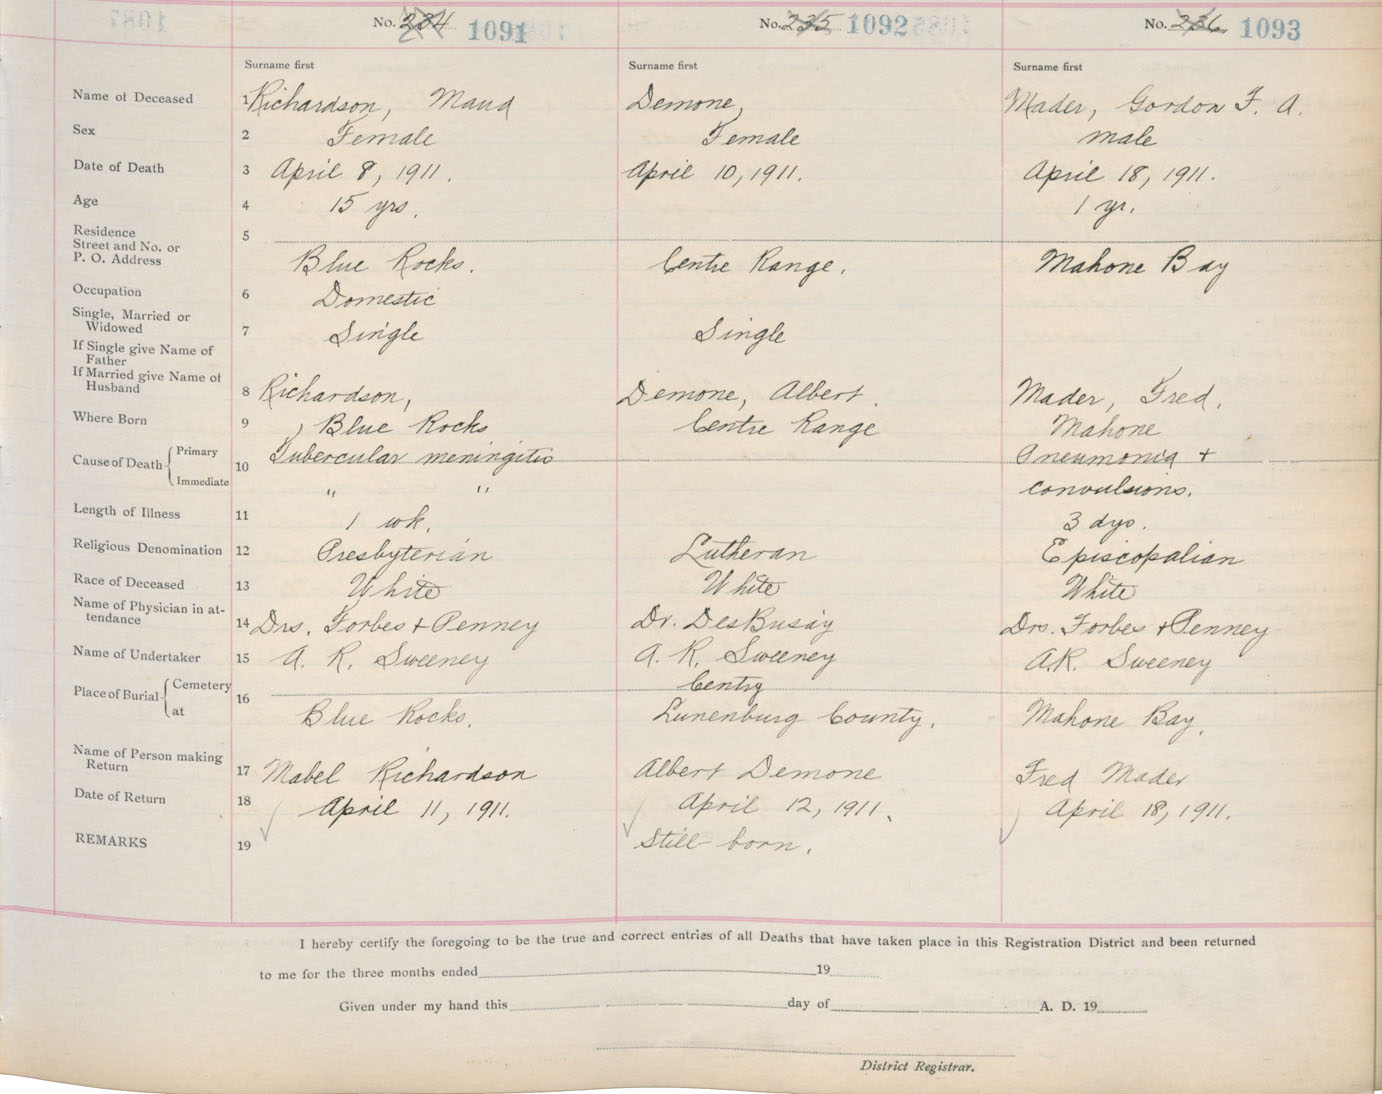 No. 234 1091 No. 235 1092 No. 236 1093
Surname first Surname first Surname first
Name of Deceased 1 Richardson, Maud Demone, Mader, Gordon F. A.
Sex 2 Female Female male
Date of Death 3 April 8, 1911. April 10, 1911. April 18, 1911.
Age 4 15 yrs. 1 yr.
Residence
Street and No. or
P. O. Address 5 Blue Rocks. Centre Range. Mahone Bay
Occupation 6 Domestic
Single, Married or
Widowed 7 Single Single
If Single give Name of
Father
If Married give Name of
Husband 8 Richardson, Demone, Albert. Mader, Fred.
Where Born 9 Blue Rocks Centre Range Mahone
Cause of Death { Primary 10 Tubercular meningitis Pneumonia +
Immediate " " convulsions.
Length of Illness 11 1 wk. 3 dys.
Religious Denomination 12 Presbyterian Lutheran Episcopalian
Race of Deceased 13 White White White
Name of Physician in at-
tendance 14 Drs. Forbes + Penney Dr. DesBusáy Drs. Forbes + Penney
Name of Undertaker 15 A. R. Sweeney A. R. Sweeney A.R. Sweeney
Place of Burial { Cemetery 16 Centry
at Blue Rocks. Lunenburg County. Mahone Bay.
Name of Person making
Return 17 Mabel Richardson Albert Demone Fred Mader
Date of Return 18 April 11, 1911. April 12, 1911. April 18, 1911.
REMARKS 19 Still-born.
I hereby certify the foregoing to be the true and correct entries of all Deaths that have taken place in this Registration District and been returned
to me for the three months ended 19
Given under my hand this day of A. D. 19
District Registrar.